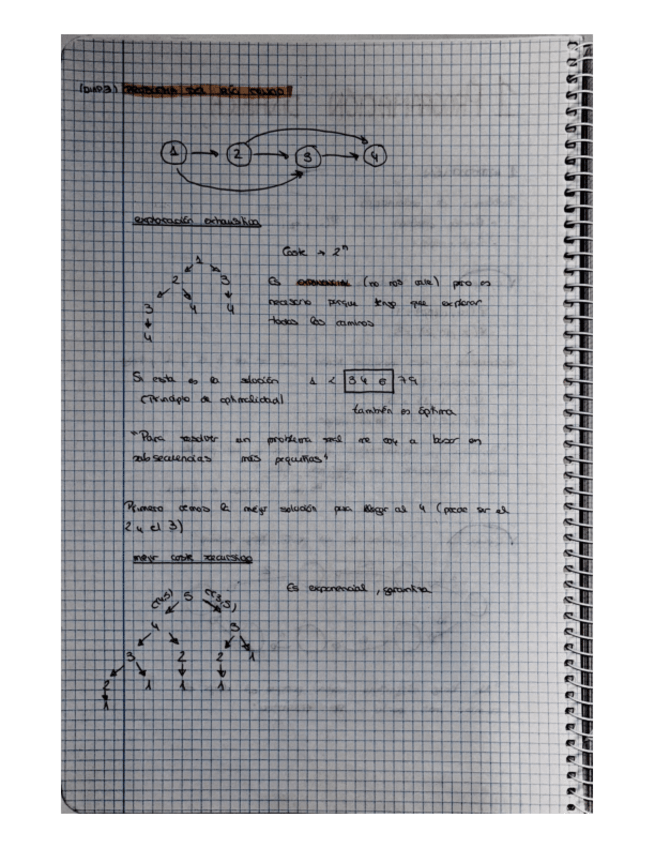 PROBLEMA DEL RÍO
1 2 3 4
exploración exhaustiva
Coste → 2ⁿ
1
2 3
3 4 4
4
Es exponencial (no nos vale) pero es
necesario porque tengo que explorar
todos los caminos
Si esta es la solución 1 2 3 4 6 7 9
(Principio de optimalidad) también es óptima
"Para resolver un problema real me voy a basar en
subsecuencias más pequeñas"
Primero vemos la mejor solución para llegar al 4 (puede ser el
2 y el 3)
mejor coste recursivo
Es exponencial, garantiza
5
4 3
3 2 2 1
2 1 1 1
1